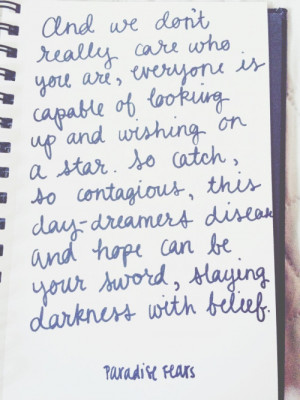 and we don't
really care who
you are, everyone is
capable of looking
up and wishing on
a star. So catch,
so contagious, this
day-dreamers disease
and hope can be
your sword, slaying
darkness with belief.
Paradise Fears